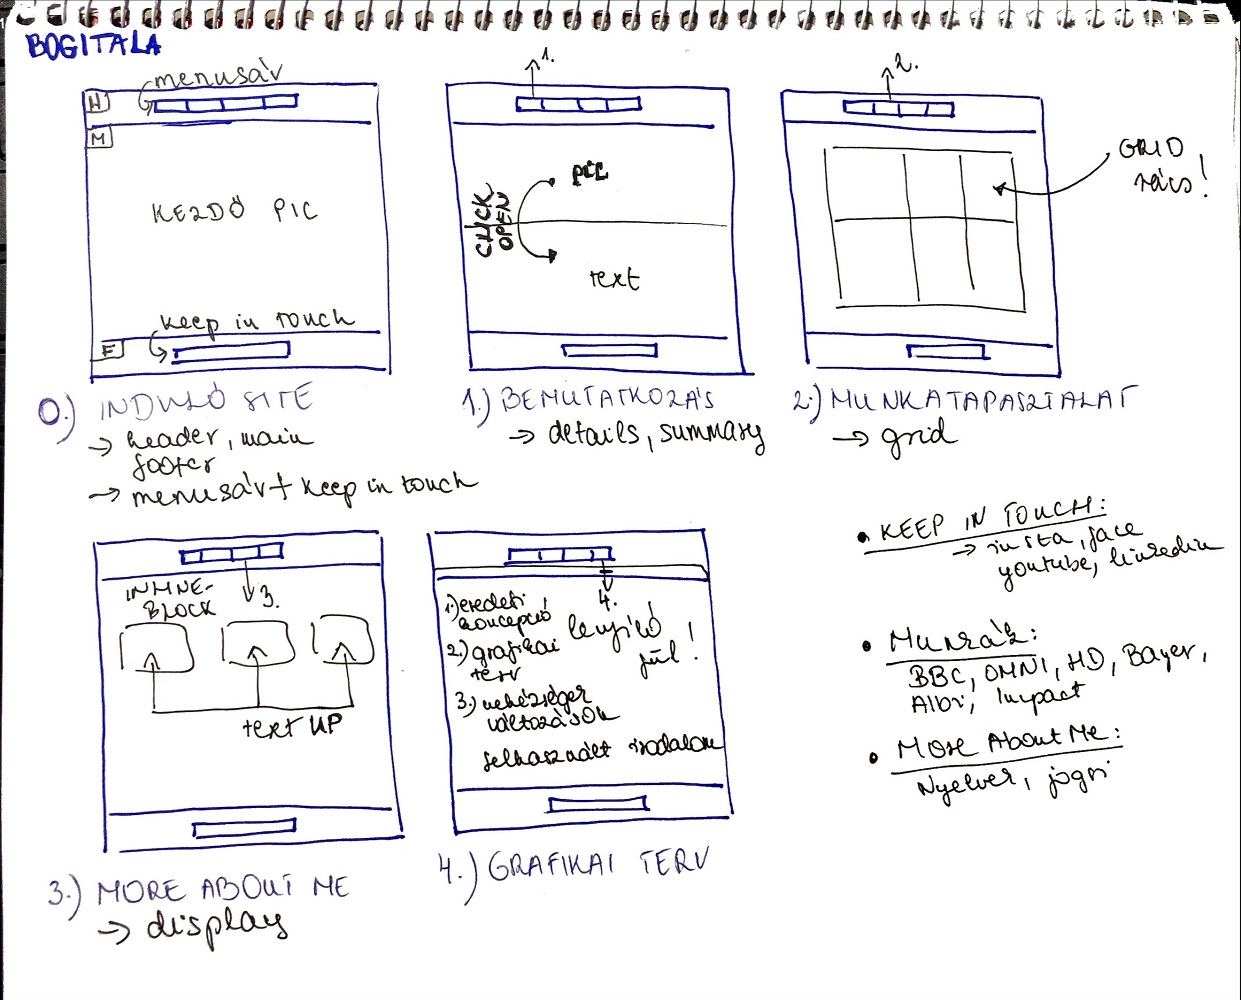 BOGITALA
menusáv
H
M
KEZDŐ PIC
keep in touch
F
0.) INDULÓ SITE
→ header, main
footer
→ menusáv + keep in touch
1.
PIC
CLICK
OPEN
text
1.) BEMUTATKOZÁS
→ details, summary
2.
GRID
rács!
2.) MUNKATAPASZTALAT
→ grid
INLINE-
BLOCK
3.
text UP
3.) MORE ABOUT ME
→ display
4.
1.) eredeti
koncepció
2.) grafikai
terv
3.) nehézségek
változások
felhasznált irodalom
lenyíló
fül!
4.) GRAFIKAI TERV
• KEEP IN TOUCH:
→ insta, face
youtube, linkedin
• Munkák:
BBC, OMNI, HD, Bayer,
Impact
• More About Me:
Nyelvek, jogsi